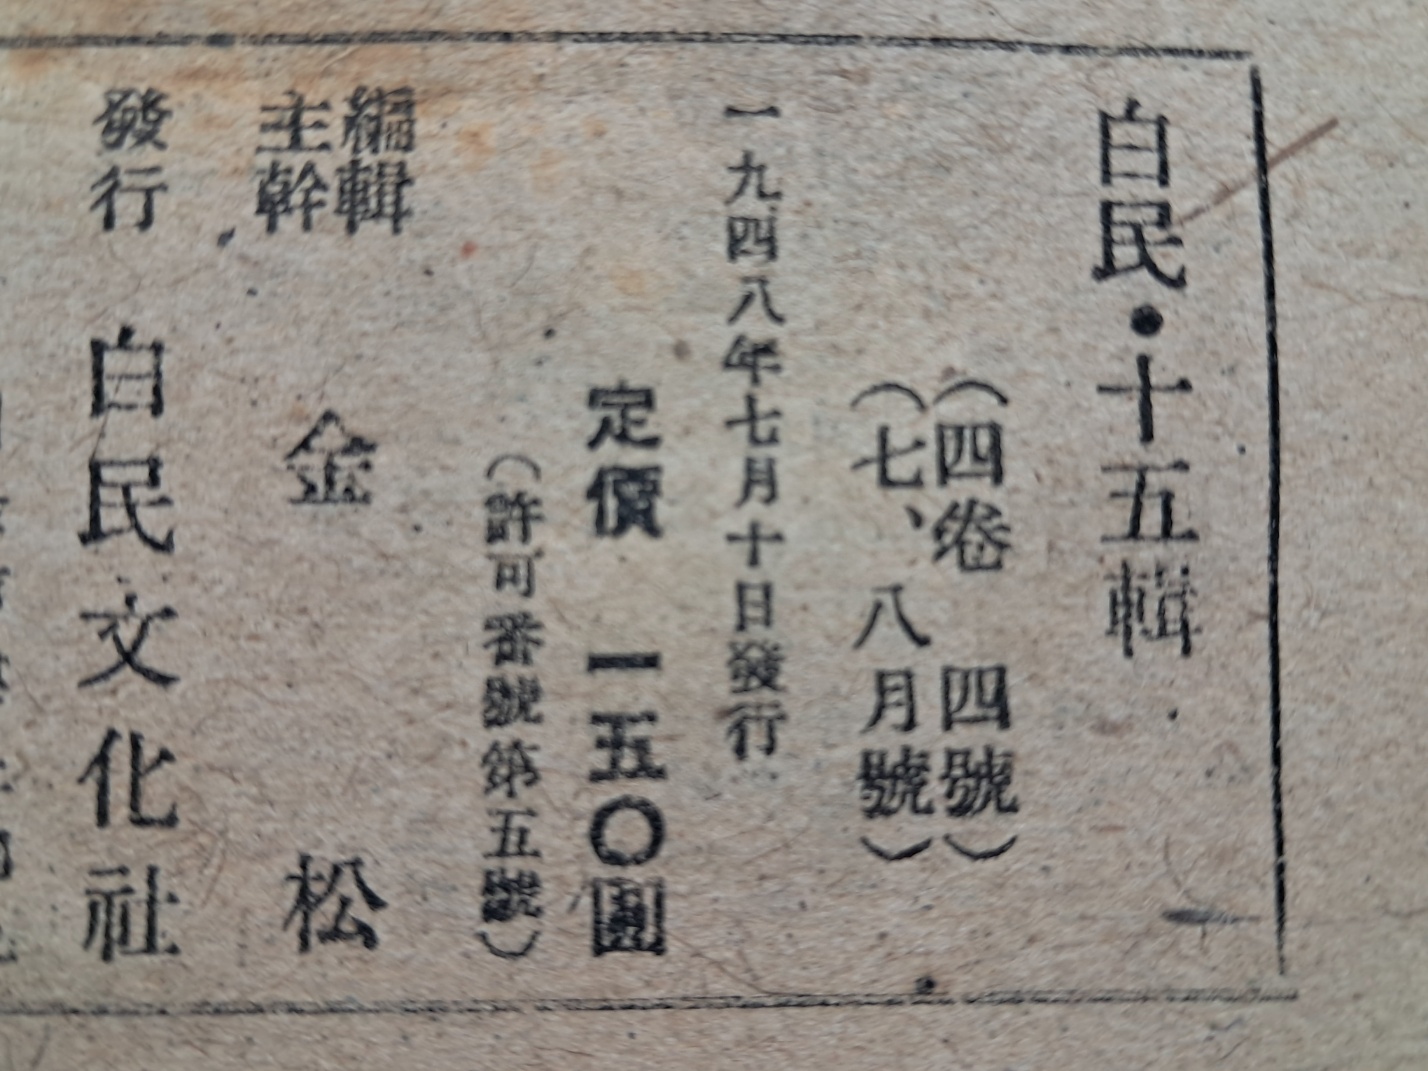 白民·十五輯
（四卷 四號）
（七、八月號）
一九四八年七月十日發行
定價 一五〇圓
（許可番號第五號）
編輯
主幹
金 松
發行 白民文化社